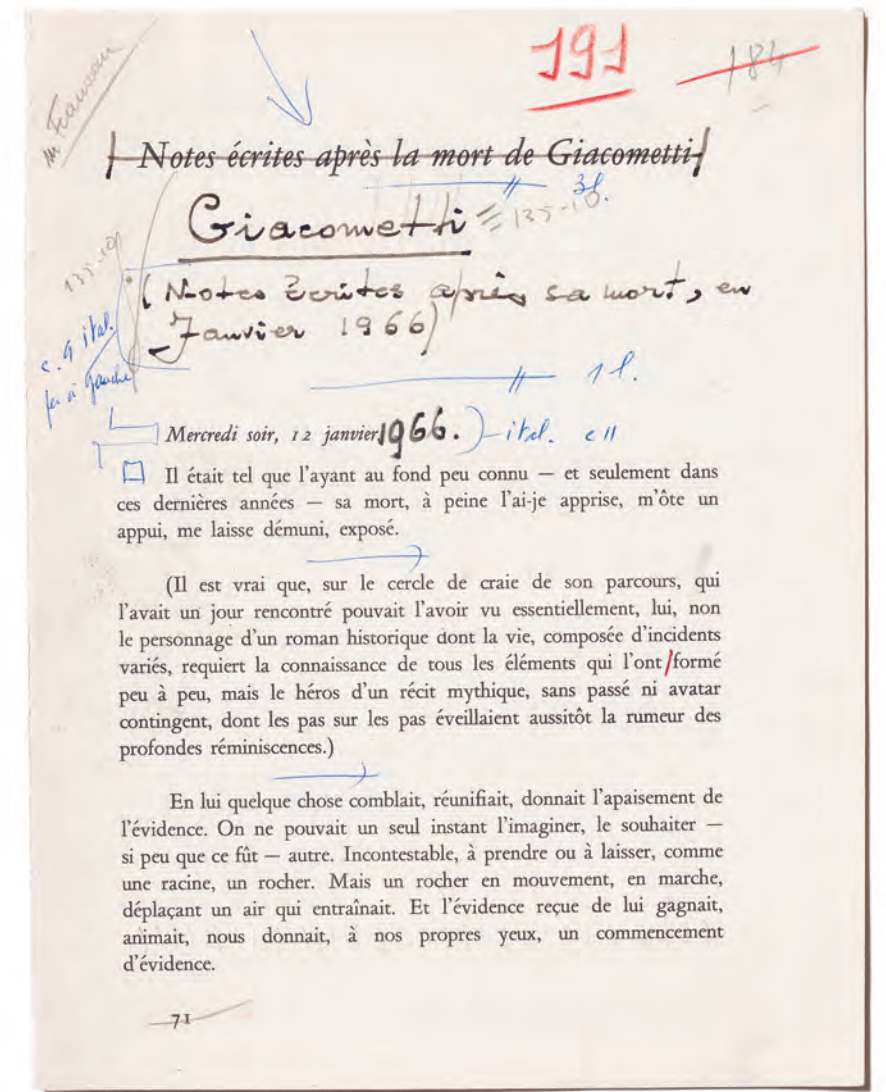 191
184
Notes écrites après la mort de Giacometti
3l.
Giacometti
135-10.
135-10
(Notes écrites après sa mort, en
Janvier 1966)
c. 9 ital.
fer à gauche
1 l.
Mercredi soir, 12 janvier 1966. ital. c 11
Il était tel que l'ayant au fond peu connu — et seulement dans
ces dernières années — sa mort, à peine l'ai-je apprise, m'ôte un
appui, me laisse démuni, exposé.
(Il est vrai que, sur le cercle de craie de son parcours, qui
l'avait un jour rencontré pouvait l'avoir vu essentiellement, lui, non
le personnage d'un roman historique dont la vie, composée d'incidents
variés, requiert la connaissance de tous les éléments qui l'ont/formé
peu à peu, mais le héros d'un récit mythique, sans passé ni avatar
contingent, dont les pas sur les pas éveillaient aussitôt la rumeur des
profondes réminiscences.)
En lui quelque chose comblait, réunifiait, donnait l'apaisement de
l'évidence. On ne pouvait un seul instant l'imaginer, le souhaiter —
si peu que ce fût — autre. Incontestable, à prendre ou à laisser, comme
une racine, un rocher. Mais un rocher en mouvement, en marche,
déplaçant un air qui entraînait. Et l'évidence reçue de lui gagnait,
animait, nous donnait, à nos propres yeux, un commencement
d'évidence.
71